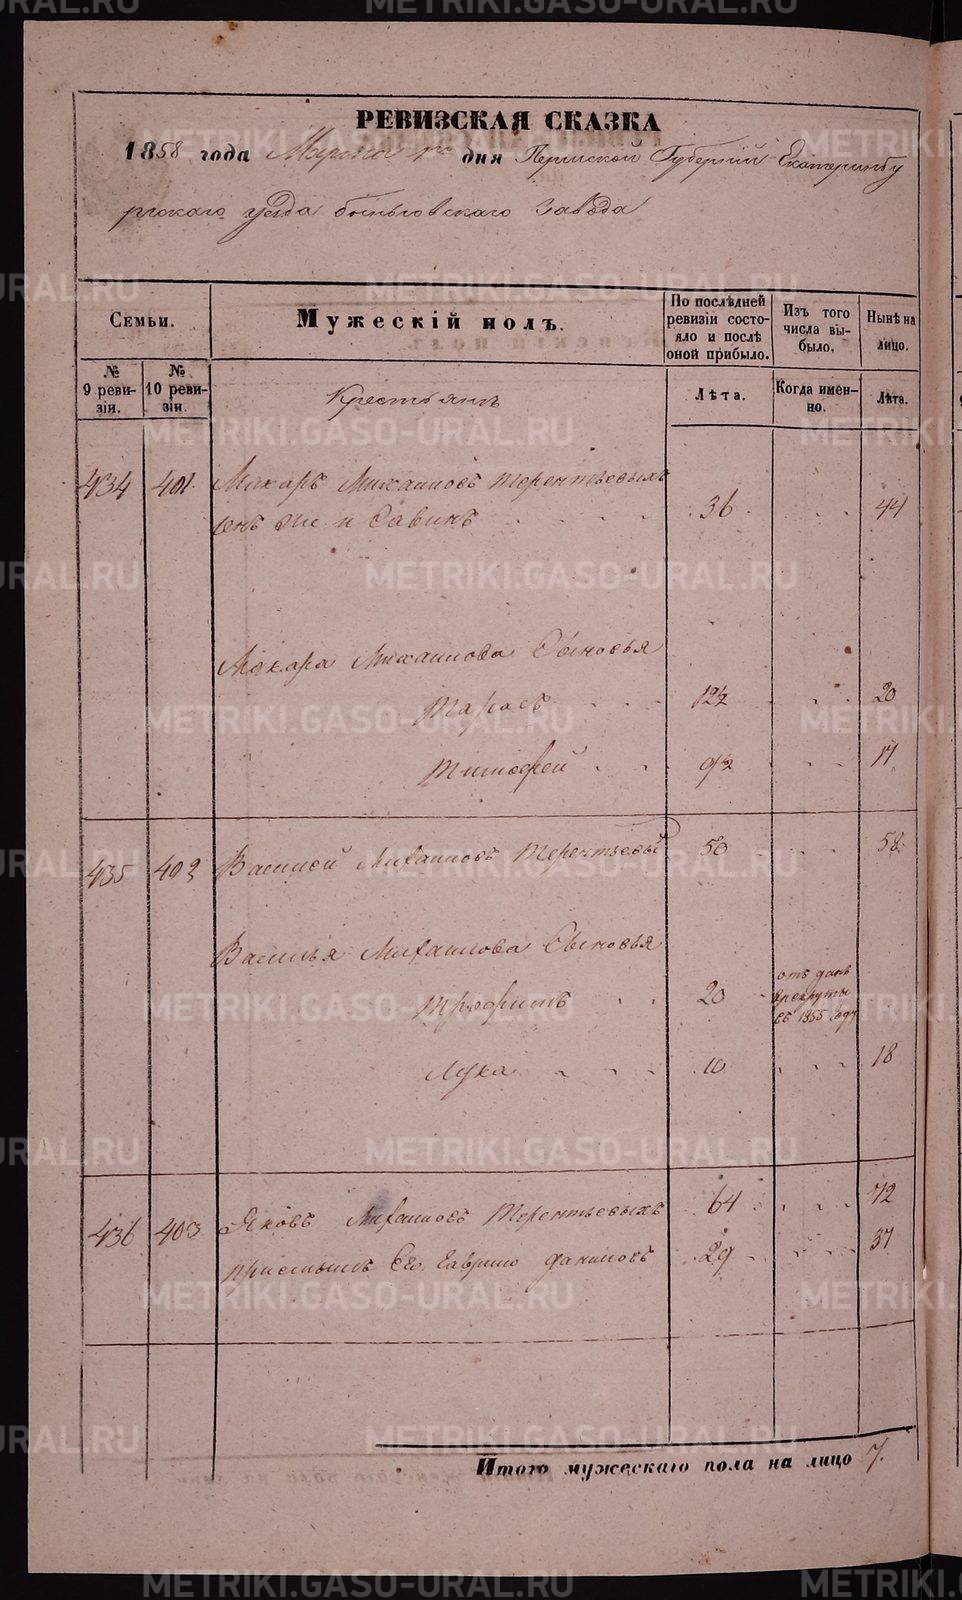 РЕВИЗСКАЯ СКАЗКА
1858 года Марта 1го дня Пермской Губерніи Екатеринбу
ргскаго уезда Быньговскаго Завода
Семьи.
Мужескій полъ.
По послѣдней ревизіи состояло и послѣ оной прибыло.
Изъ того числа выбыло.
Нынѣ на лицо.
№ 9 ревизіи.
№ 10 ревизіи.
Лѣта.
Когда именно.
Лѣта.
Крестьянъ
434 401. Макаръ Михаиловъ Терентьевыхъ
онъ же и Савинъ 36 44
Макара Михаилова Сыновья
Тарасъ 12½ 20
Тимофей 9½ 17
435 402 Василей Михаиловъ Терентьевы 50 58
Василья Михаилова Сыновья
Трофимъ 20 отъ данъ
в рекруты
въ 1855 году
Лука 10 18
436 403 Яковъ Михаиловъ Терентьевыхъ 64 72
Приемышъ Его Гаврило Даниловъ 29 37
Итого мужескаго пола на лицо 7.
METRIKI.GASO-URAL.RU